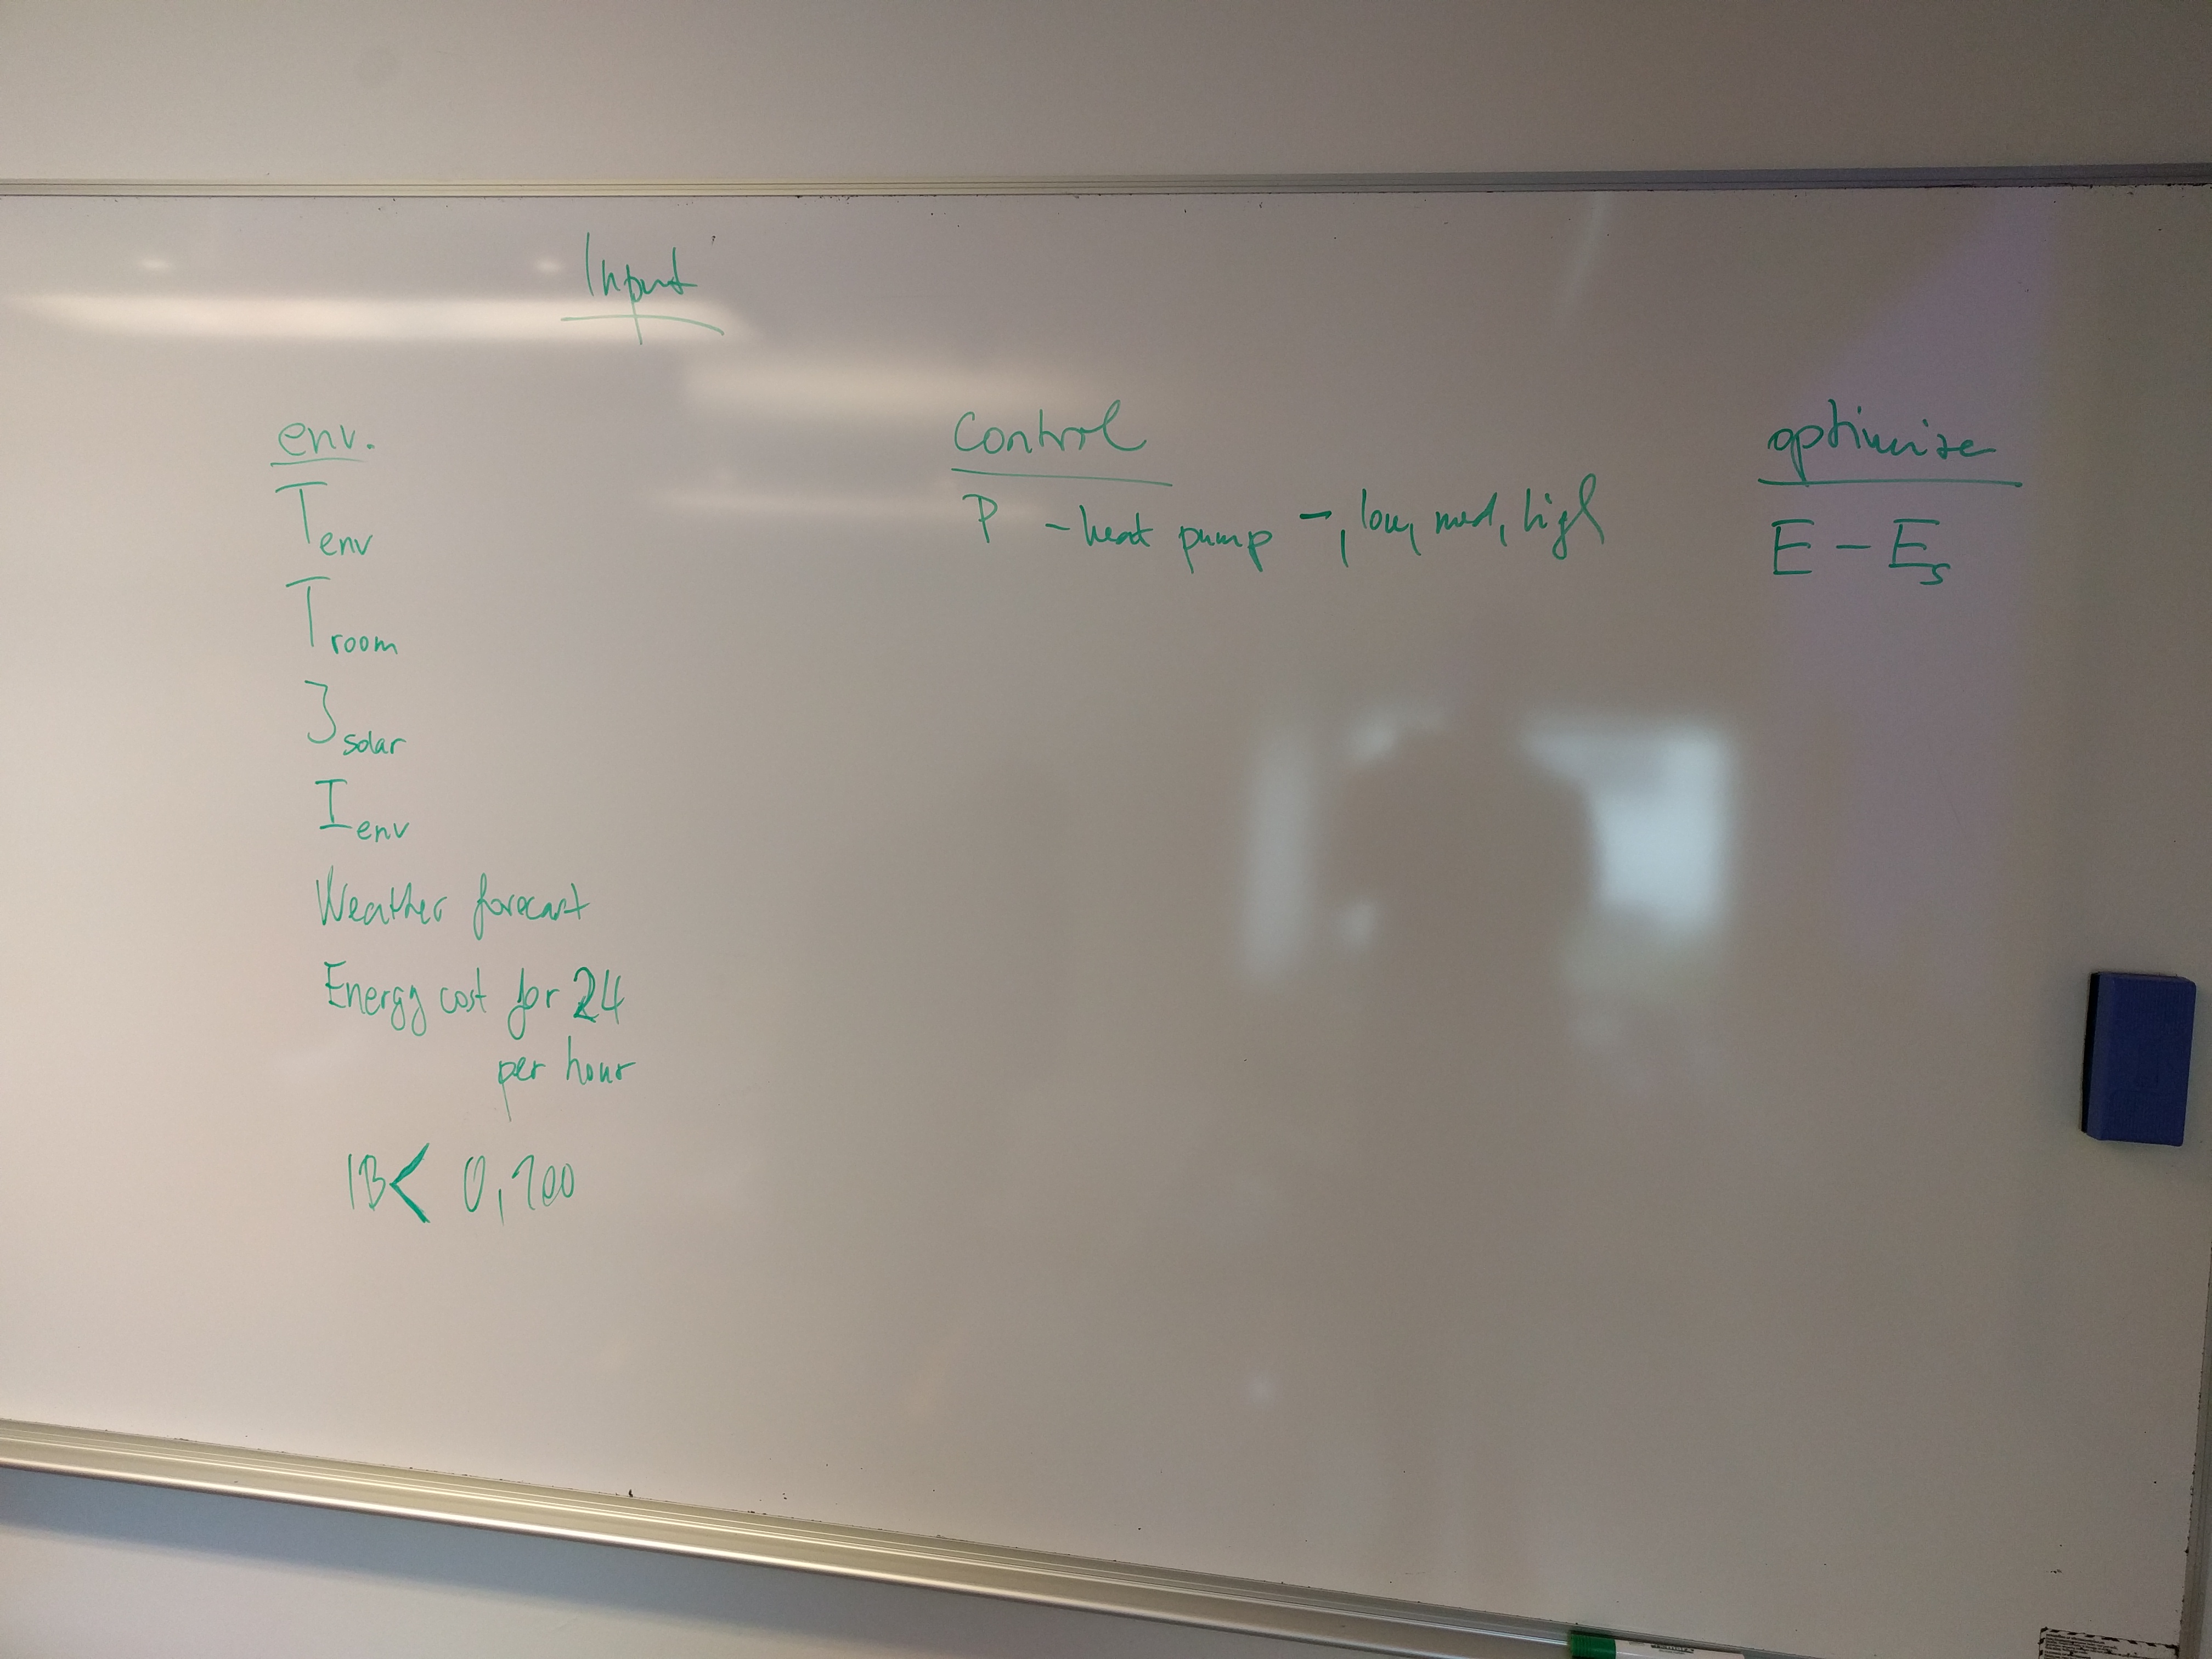 Input
env.
T env
T room
J solar
I env
Weather forecast
Energy cost for 24
per hour
IB< 0,100
control
P - heat pump -, low, med, high
optimize
E - Es